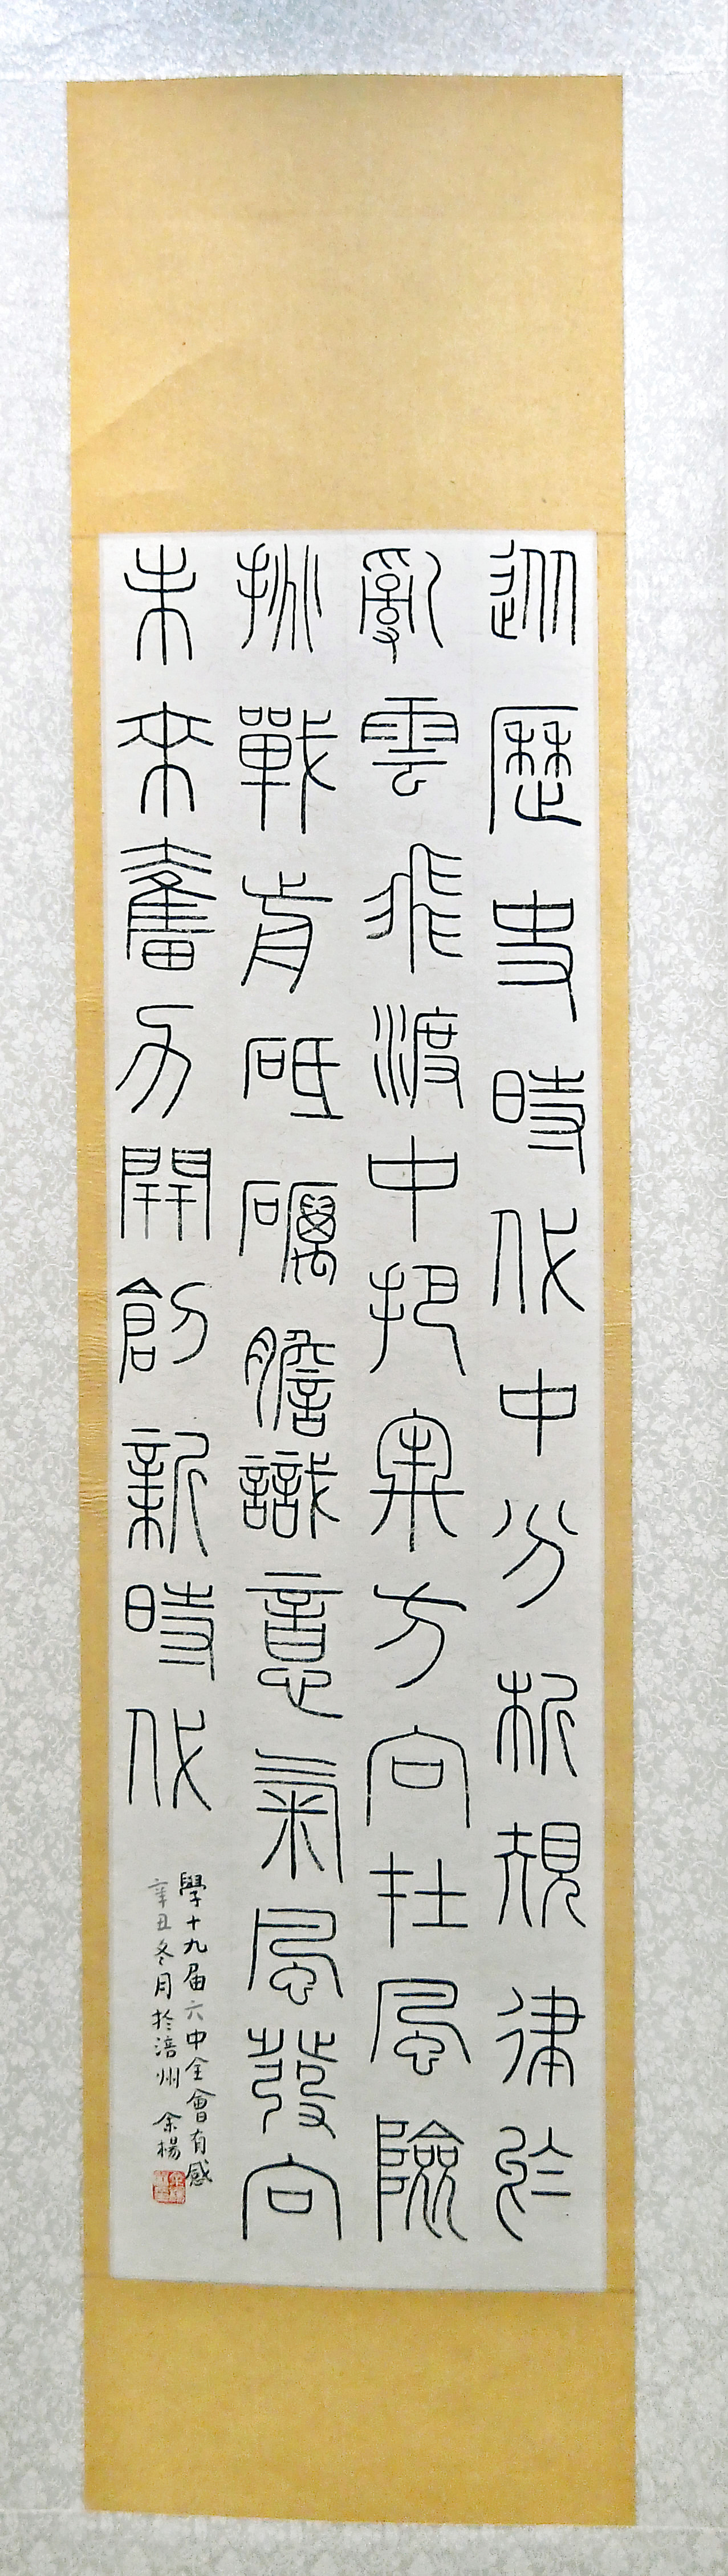 從歷史時代中分析規律於
亂雲飛渡中把方向在風險
挑戰前砥礪膽識意氣風發向
未來奮力開創新時代
學十九届六中全會有感
辛丑冬月於涪州 余楊